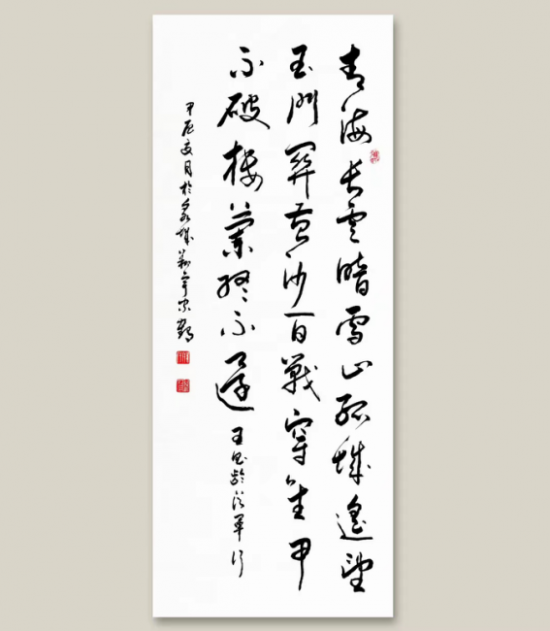 青海長雲暗雪山孤城遙望
玉門關黃沙百戰穿金甲
不破樓蘭終不還 王昌齡從軍行
甲辰夏月於泉城